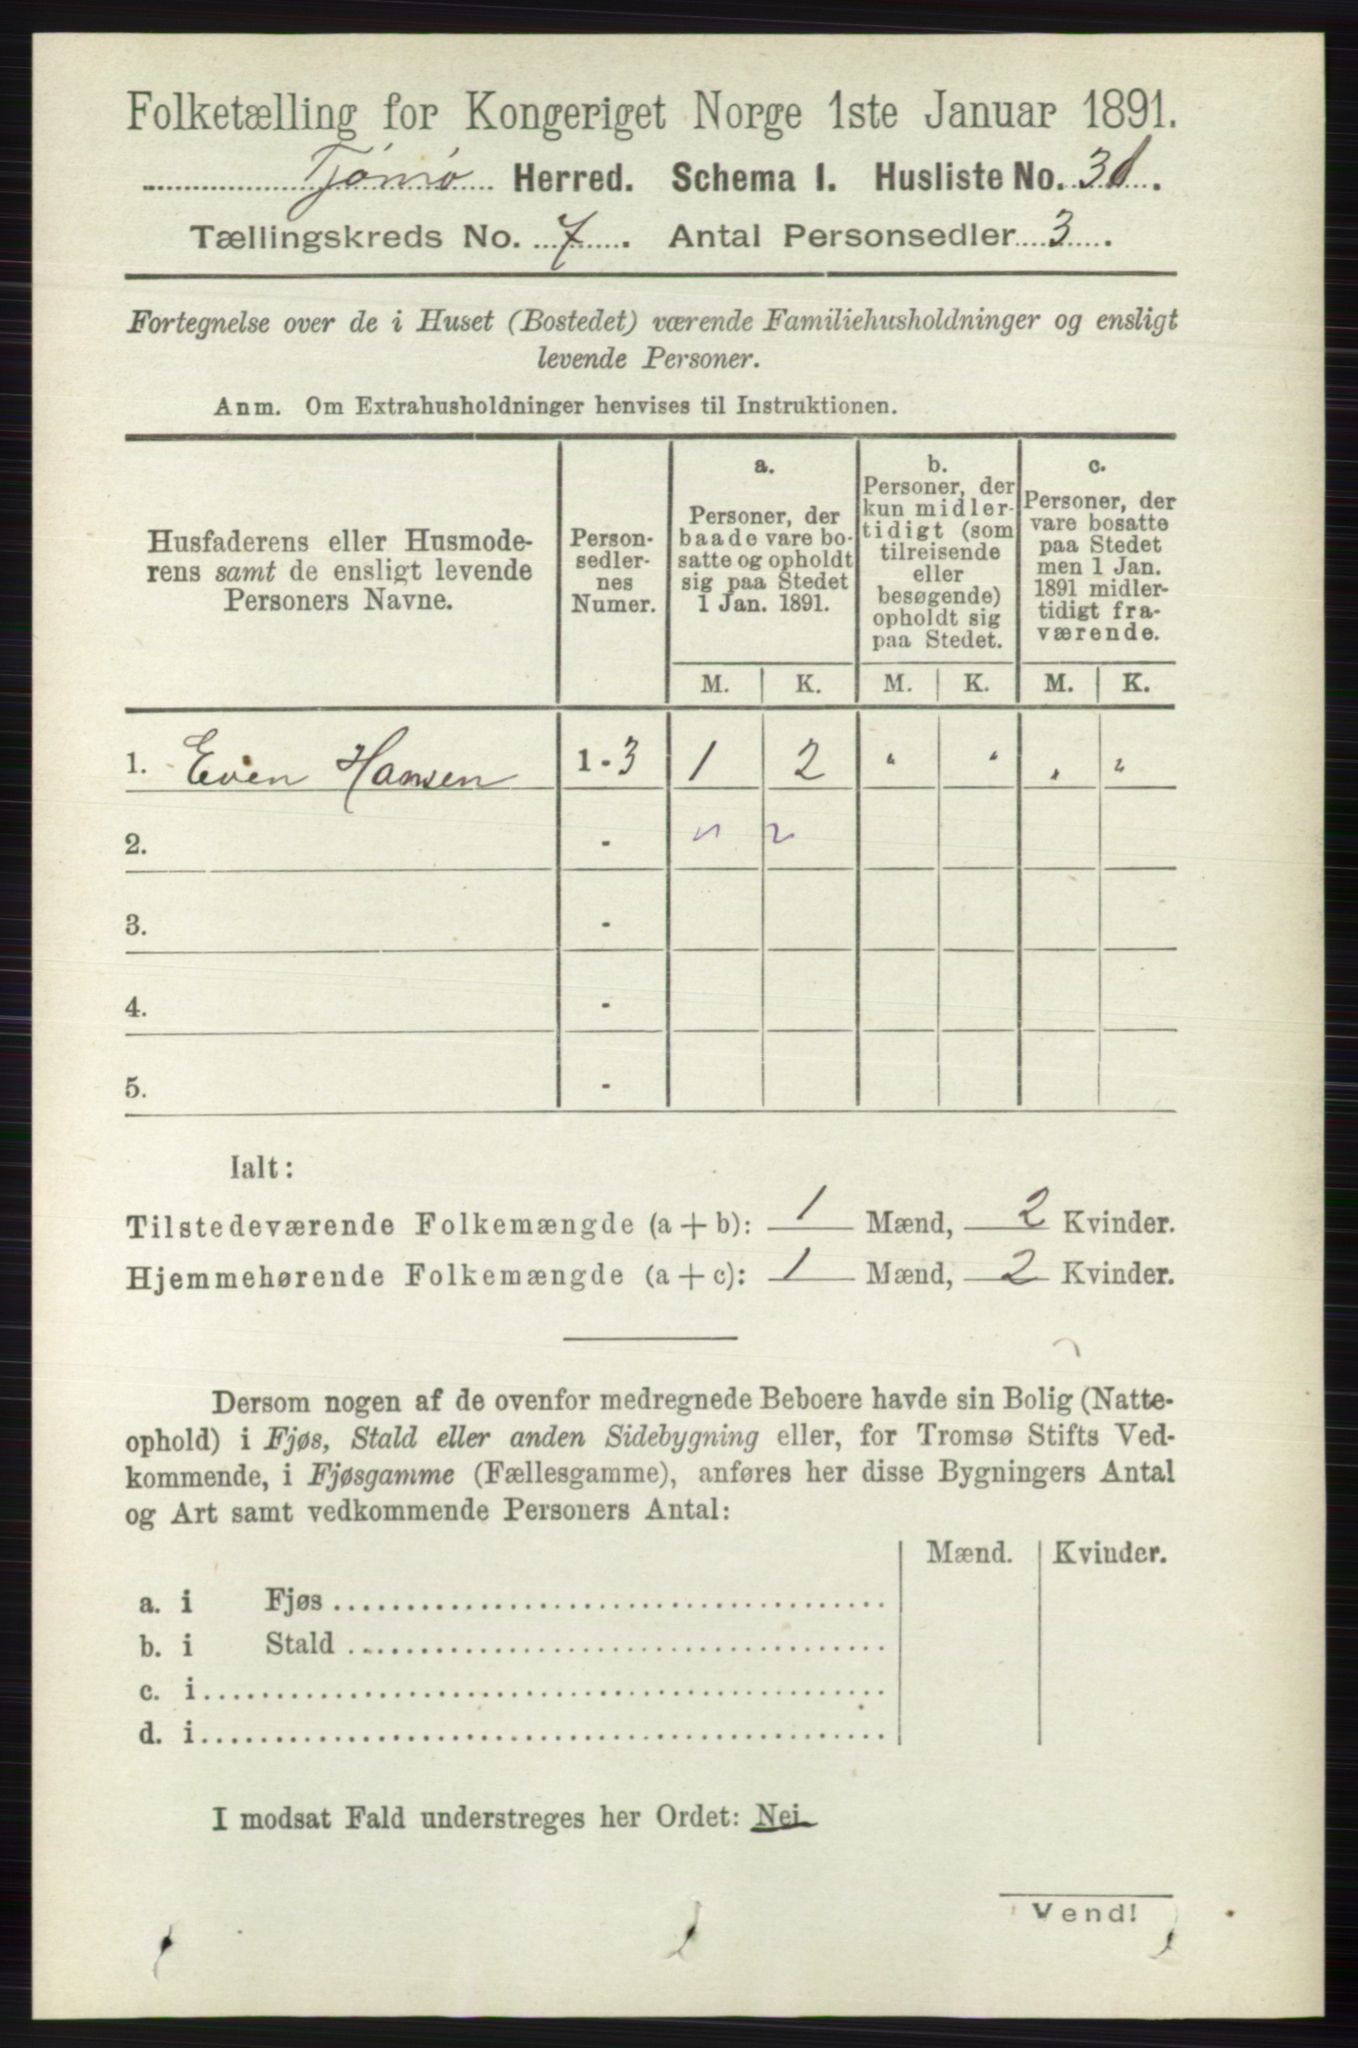 Folketælling for Kongeriget Norge 1ste Januar 1891.
Tjømø Herred. Schema 1. Husliste No.
Tællingskreds No. 7. Antal Personsedler 3.
Fortegnelse over de i Huset (Bostedet) værende Familiehusholdninger og ensligt
levende Personer.
Anm. Om Extrahusholdninger henvises til Instruktionen.
Husfaderens eller Husmode-
rens samt de ensligt levende
Personers Navne.
Person-
sedler-
nes
Numer.
a.
Personer, der
baade vare bo-
satte og opholdt
sig paa Stedet
1 Jan. 1891.
b.
Personer, der
kun midler-
tidigt (som
tilreisende
eller
besøgende)
opholdt sig
paa Stedet.
c.
Personer, der
vare bosatte
paa Stedet
men 1 Jan.
1891 midler-
tidigt fra-
værende.
M. K. M. K. M. K.
1. Even Hansen 1 - 3 1 2 " " " "
2. -
3. -
4. -
5. -
Ialt:
Tilstedeværende Folkemængde (a + b): 1 Mænd, 2 Kvinder.
Hjemmehørende Folkemængde (a + c): 1 Mænd, 2 Kvinder.
Dersom nogen af de ovenfor medregnede Beboere havde sin Bolig (Natte-
ophold) i Fjøs, Stald eller anden Sidebygning eller, for Tromsø Stifts Ved-
kommende, i Fjøsgamme (Fællesgamme), anføres her disse Bygningers Antal
og Art samt vedkommende Personers Antal:
Mænd. Kvinder.
a. i Fjøs
b. i Stald
c. i
d. i
I modsat Fald understreges her Ordet: Nei
Vend!